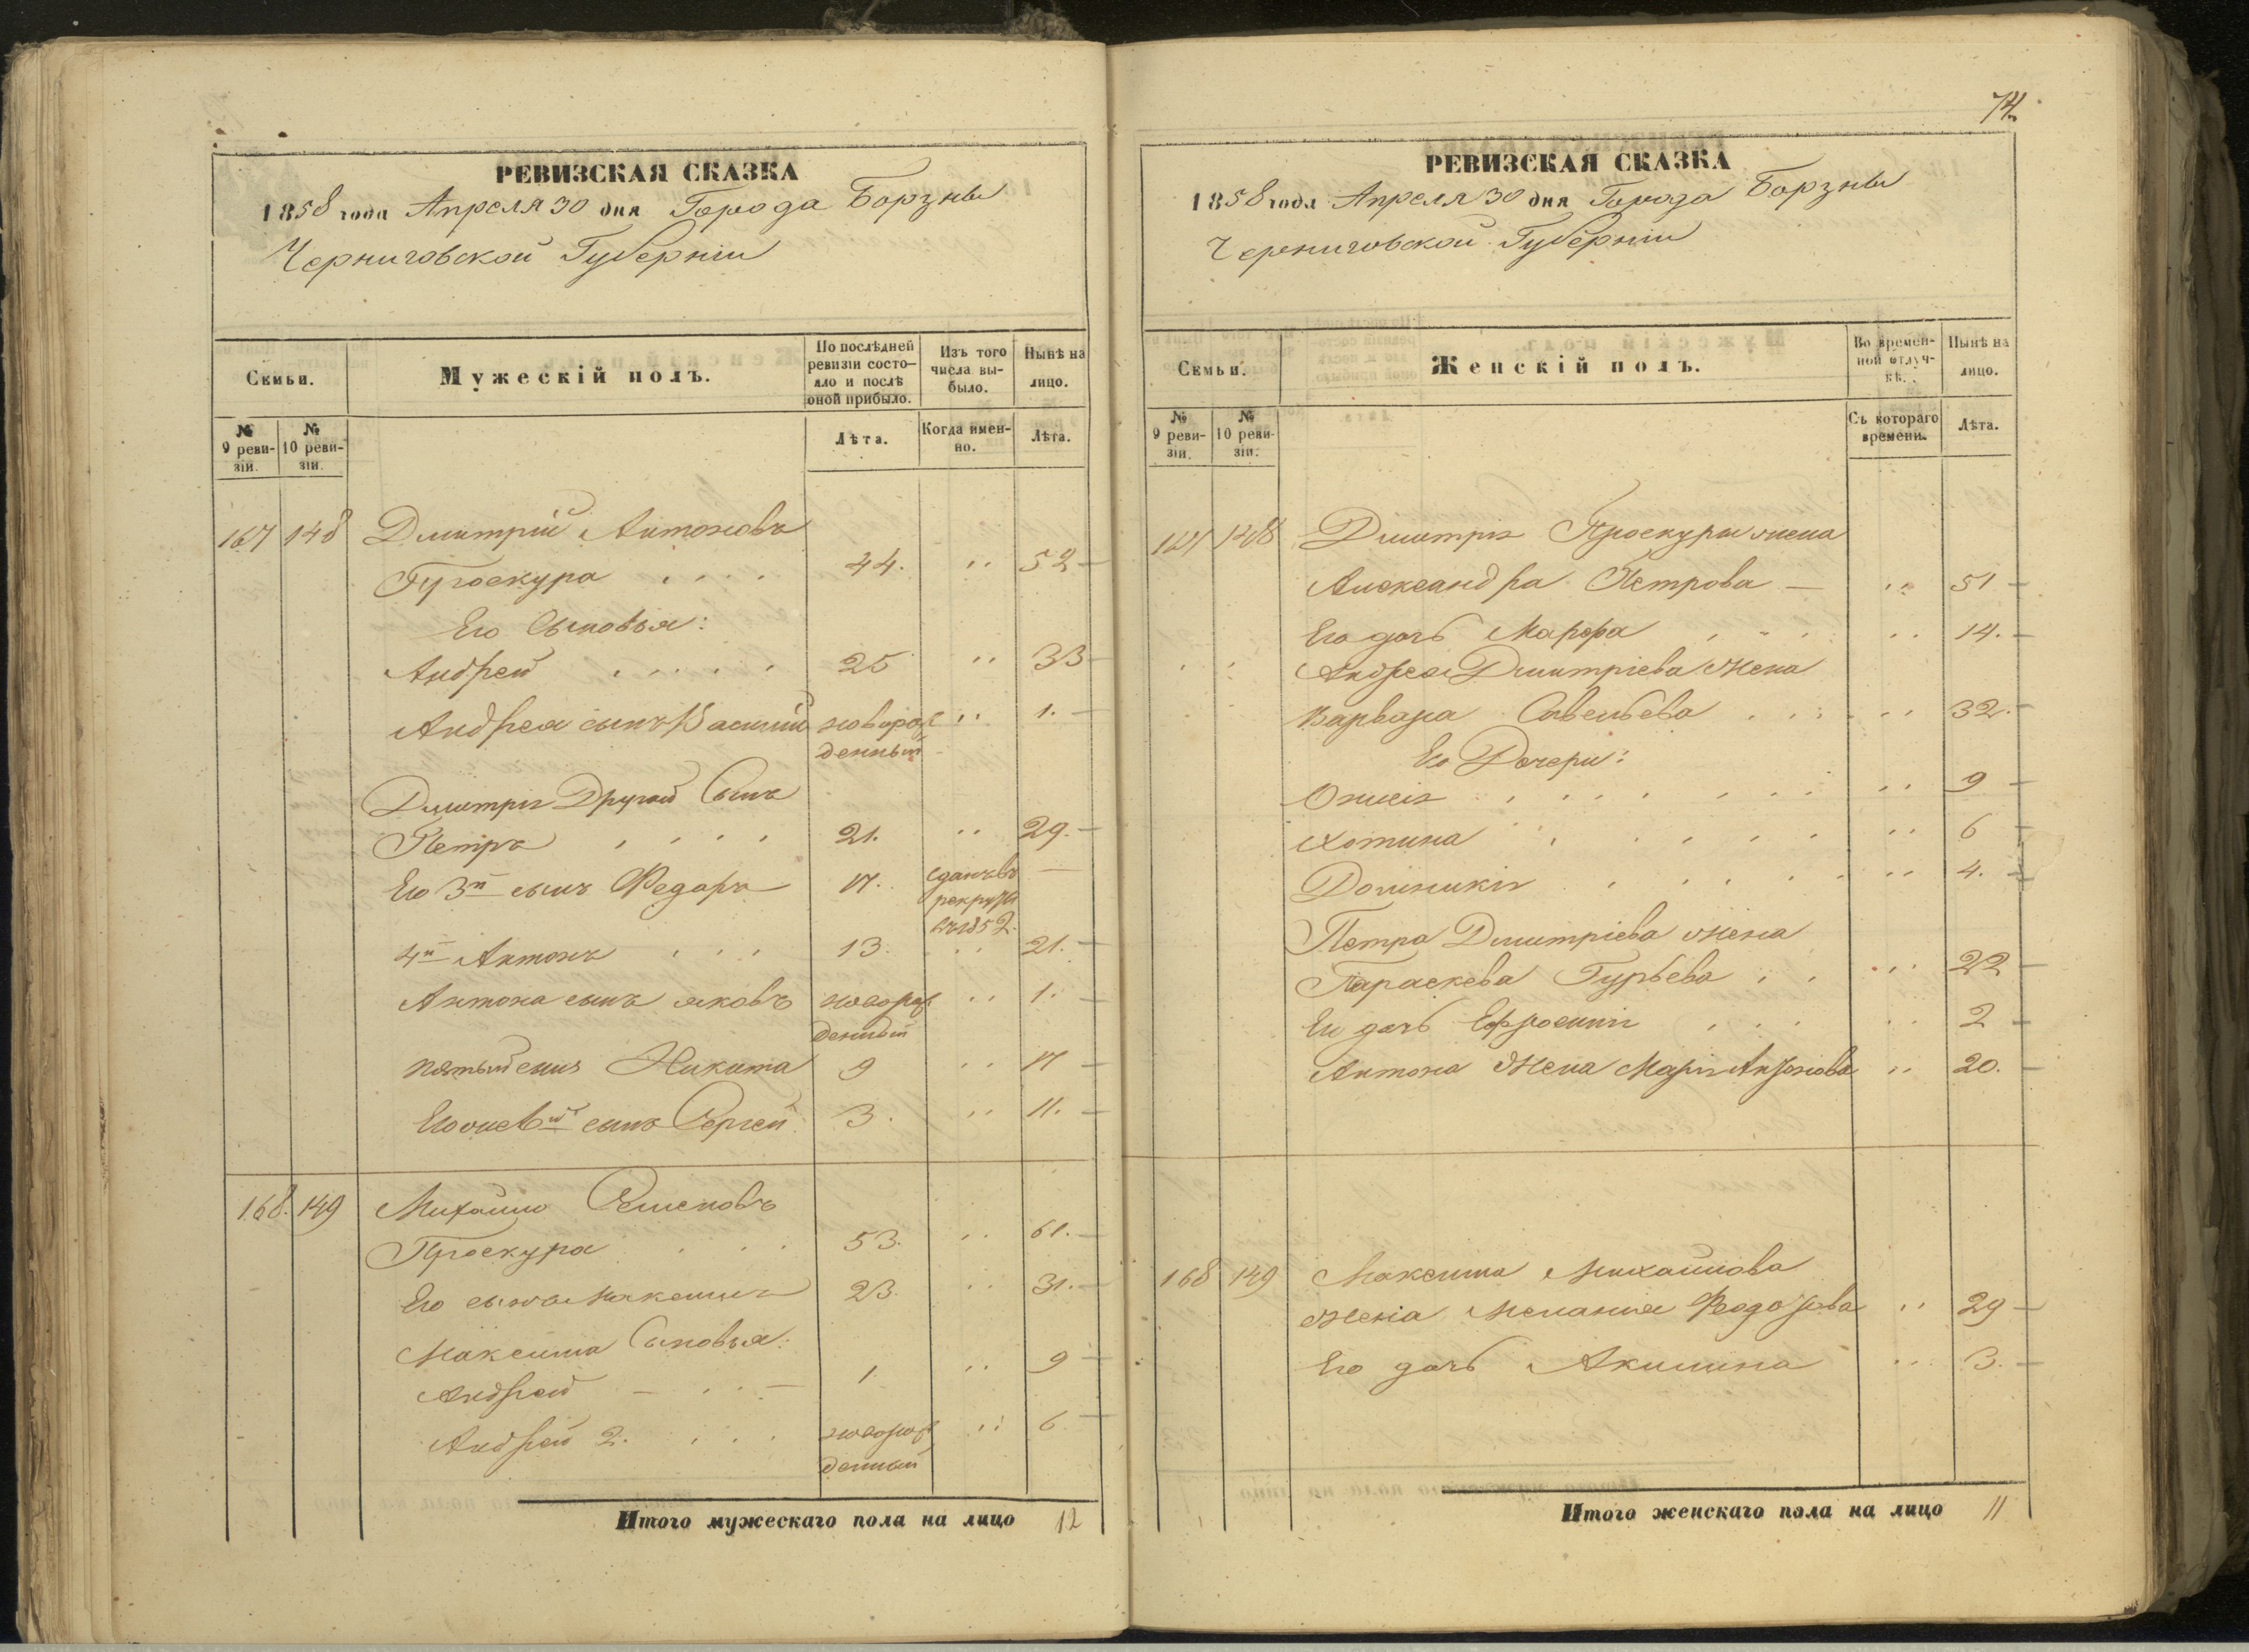 РЕВИЗСКАЯ СКАЗКА
1858 года Апреля 30 дня Города Борзны
Черниговской Губерніи
Семьи.
Мужескій полъ.
По послѣдней ревизіи состо-
яло и послѣ
оной прибыло.
Изъ того
числа вы-
было.
Нынѣ на
лицо.
№
9 реви-
зіи.
№
10 реви-
зіи.
Лѣта.
Когда имен-
но.
Лѣта.
167 148 Дмитрій Антоновъ
Проскура . . . . 44. " 52 —
Его Сыновья:
Андрей . . . . . 25 " 33 —
Андрея сынъ Василій новорож " 1. —
денный
Дмитрія Другой Сынъ
Петръ . . . . 21. " 29. —
Его 3й сынъ Федоръ 17. сданъ въ —
рекруты
въ 1852.
4й Антонъ . . . 13. " 21. —
Антона сынъ яковъ новорож " 1. —
денный
пятый сынъ Никита 9 " 17 —
сынъ Сергей 3. " 11. —
168. 149 Михайло Семеновъ
Проскура . . . 53. " 61. —
Его сынъ Максимъ 23. " 31. —
Максима Сыновья:
Андрей — . . — 1. " 9 —
Андрей 2. . . . новорож " 6 —
денный
Итого мужескаго пола на лицо 12
74.
РЕВИЗСКАЯ СКАЗКА
1858 года Апреля 30 дня Города Борзны
Черниговской Губерніи
Семьи.
Женскій полъ.
Во времен-
ной отлуч-
кѣ.
Нынѣ на
лицо.
№
9 реви-
зіи.
№
10 реви-
зіи.
Съ котораго
времени.
Лѣта.
167 148 Дмитрія Проскуры жена
Александра Петрова — " 51 —
Его дочь Марфа . . . " 14. —
Андрея Дмитріева Жена
Варвара Савельева . . . " 32. —
Его Дочери:
. . . . . . " 9 —
Хотина . . . . . " 6 —
Домникія . . . . . " 4. —
Петра Дмитріева жена
Параскева Гурьева . . " 22 —
Ея дочь Ефросинія . . . " 2 —
Антона Жена Марія " 20. —
168 149 Максима Михайлова
Жена Меланія " 29 —
Его дочь Акилина " 3. —
Итого женскаго пола на лицо 11